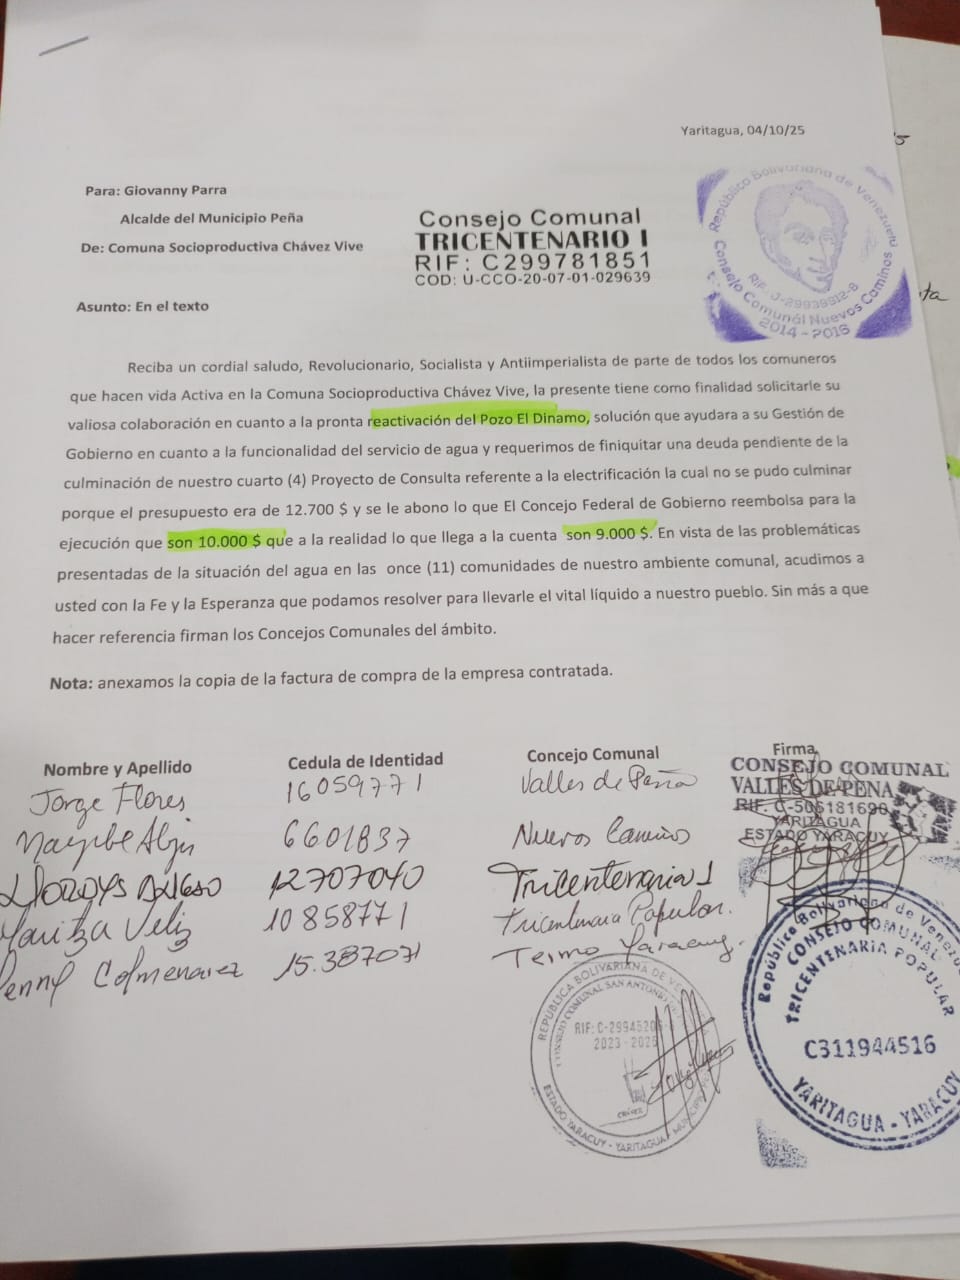 Yaritagua, 04/10/25
Para: Giovanny Parra
Alcalde del Municipio Peña
De: Comuna Socioproductiva Chávez Vive
Asunto: En el texto
Consejo Comunal
TRICENTENARIO I
RIF: C299781851
COD: U-CCO-20-07-01-029639
República Bolivariana de Venezuela
Consejo Comunal Nuevos Caminos
RIF: J-29939912-8
2014-2016
Reciba un cordial saludo, Revolucionario, Socialista y Antiimperialista de parte de todos los comuneros
que hacen vida Activa en la Comuna Socioproductiva Chávez Vive, la presente tiene como finalidad solicitarle su
valiosa colaboración en cuanto a la pronta reactivación del Pozo El Dinamo, solución que ayudara a su Gestión de
Gobierno en cuanto a la funcionalidad del servicio de agua y requerimos de finiquitar una deuda pendiente de la
culminación de nuestro cuarto (4) Proyecto de Consulta referente a la electrificación la cual no se pudo culminar
porque el presupuesto era de 12.700 $ y se le abono lo que El Concejo Federal de Gobierno reembolsa para la
ejecución que son 10.000 $ que a la realidad lo que llega a la cuenta son 9.000 $. En vista de las problemáticas
presentadas de la situación del agua en las once (11) comunidades de nuestro ambiente comunal, acudimos a
usted con la Fe y la Esperanza que podamos resolver para llevarle el vital líquido a nuestro pueblo. Sin más a que
hacer referencia firman los Concejos Comunales del ámbito.
Nota: anexamos la copia de la factura de compra de la empresa contratada.
Nombre y Apellido Cedula de Identidad Concejo Comunal Firma
Jorge Flores 16059771 Valles de Peña
6601837 Nuevo Caminos
12707040 Tricentenario 1
Maritza Veliz 10858771 Tricentenaria Popular.
Colmenarez 15.387071 Termo Yaracuy.
CONSEJO COMUNAL
VALLES DE PEÑA
YARITAGUA
ESTADO YARACUY
República Bolivariana de Venezuela
CONSEJO COMUNAL
TRICENTENARIA POPULAR
C311944516
YARITAGUA - YARACUY
REPÚBLICA BOLIVARIANA DE
CONSEJO COMUNAL SAN ANTONIO
RIF: C-2994520
2023 - 2025
ESTADO YARACUY - YARITAGUA - MUNICIPIO